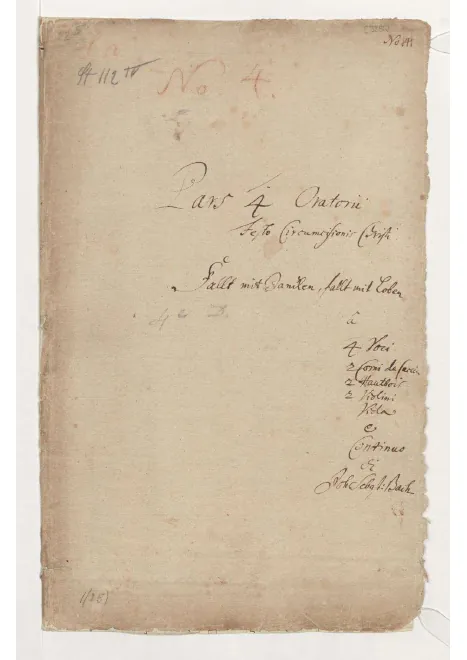 No 4.
Pars 4 Oratorii
Festo Circumcisionis Christi
Fallt mit Dancken, fallt mit Loben
à
4 Voci
2 Corni da Caccia
2 Hautbois
2 Violini
Viola
e
Continuo
di
Joh: Sebast: Bach